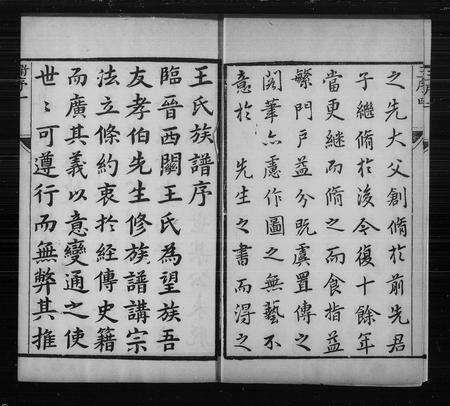 之先大父創脩於前先君
子繼脩於後今復十餘年
當更繼而脩之而食指益
繁門戶益分既虞置傳之
閣筆亦慮作圖之無藝不
意於　先生之書而得之
王氏族譜序
臨晉西關王氏為望族吾
友孝伯先生修族譜講宗
法立條約衷於經傳史籍
而廣其義以意變通之使
世〻可遵行而無弊其推